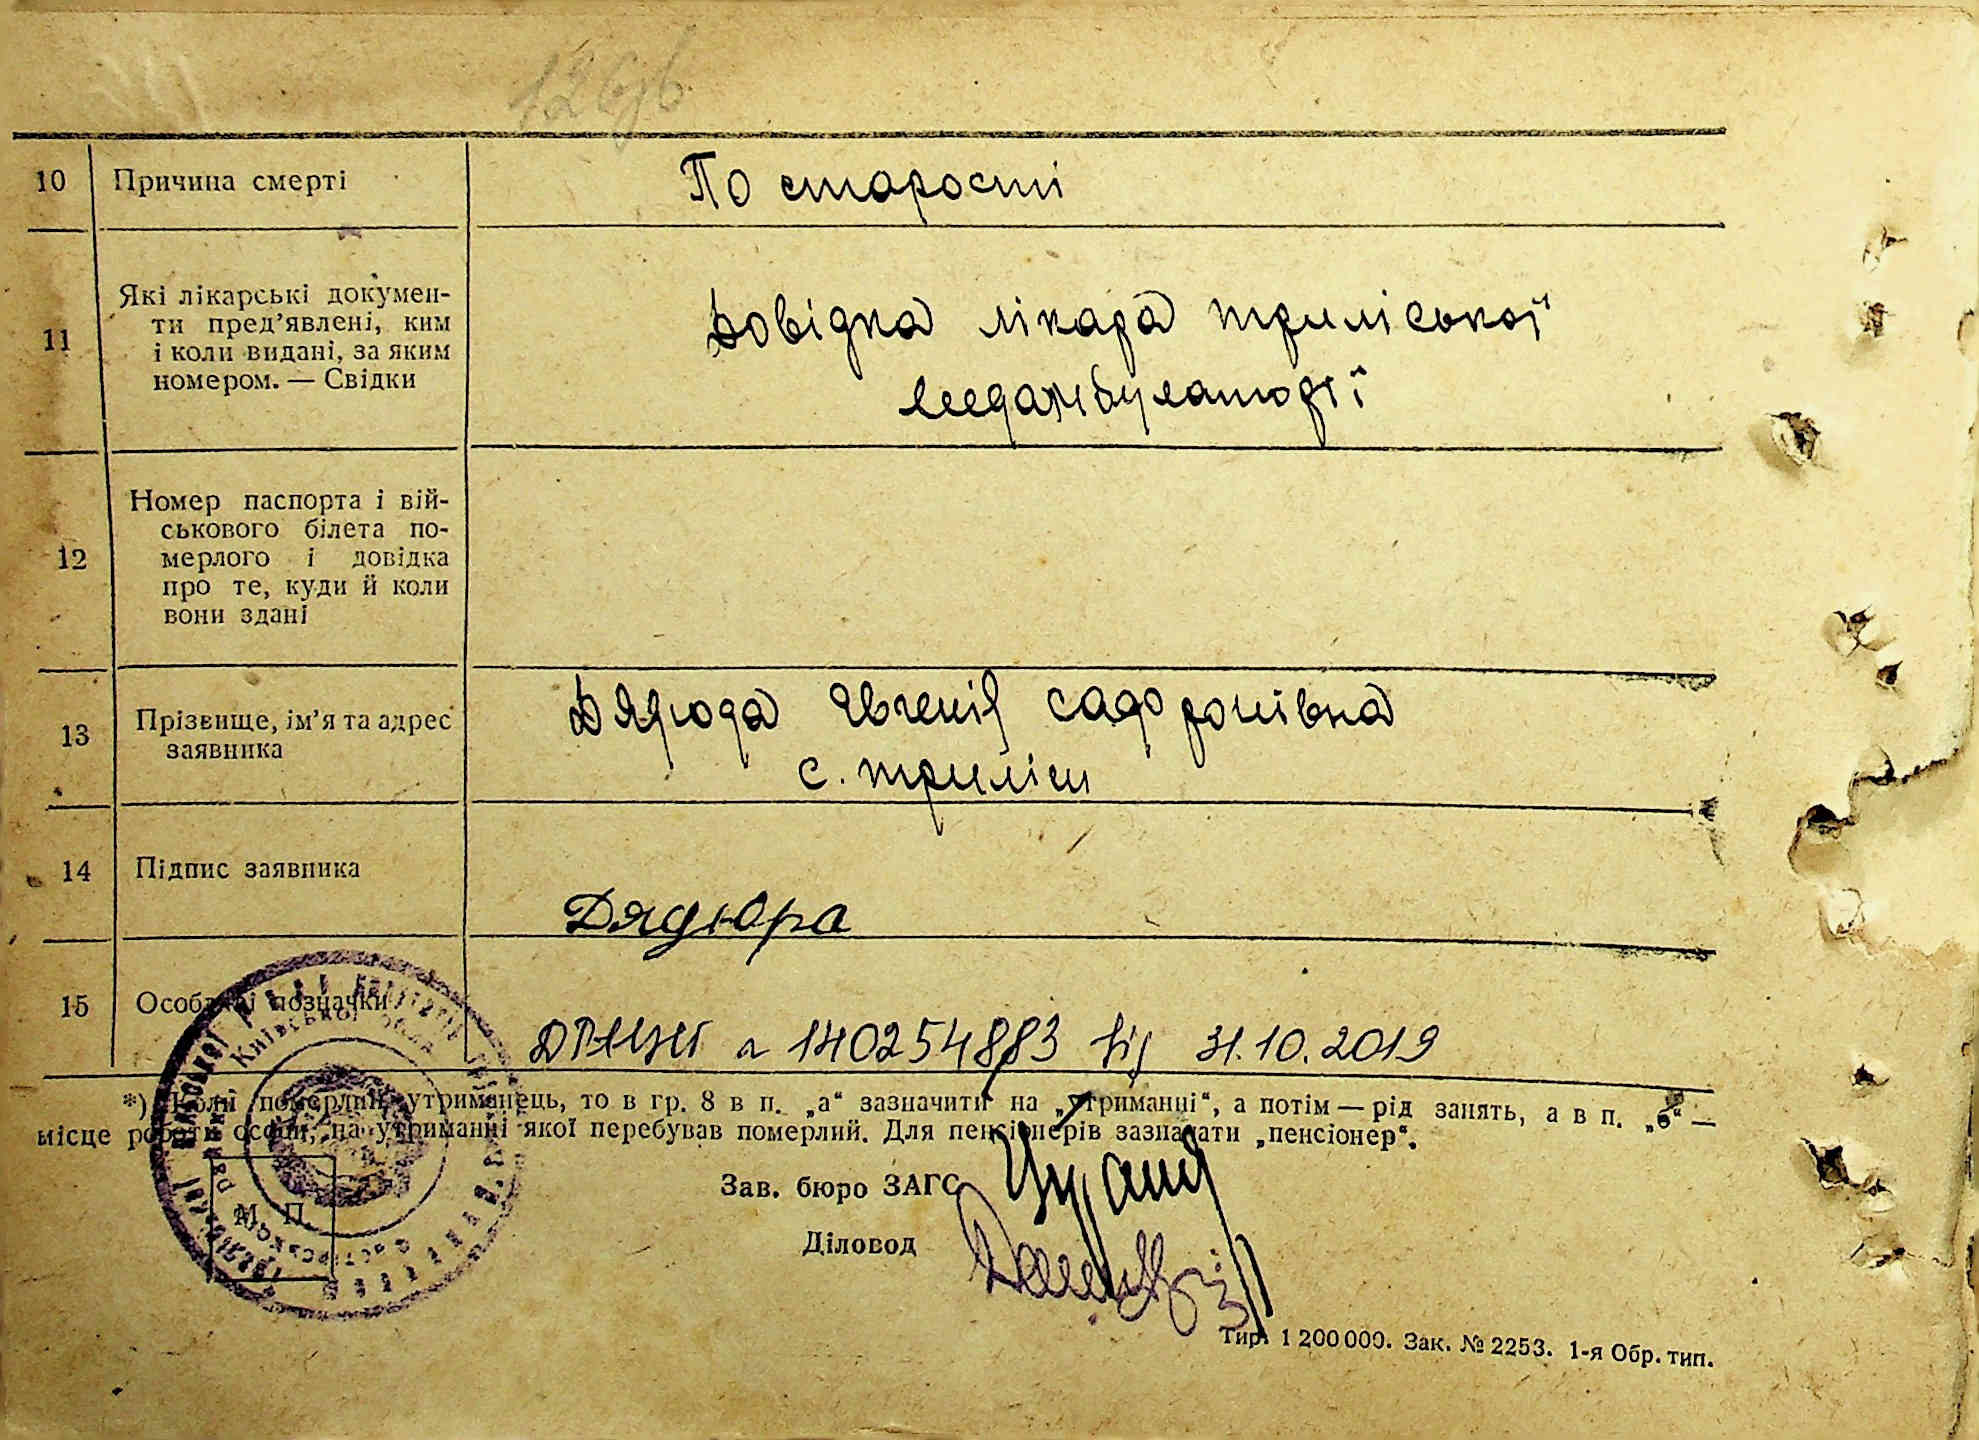 10 Причина смерті По старості
11 Які лікарські докумен-
ти пред’явлені, ким
і коли видані, за яким
номером. — Свідки
Довідка лікара триліської
медамбулаторії
12 Номер паспорта і вій-
ськового білета по-
мерлого і довідка
про те, куди й коли
вони здані
13 Прізвище, ім’я та адрес
заявника
Євгенія
с. триліси
14 Підпис заявника Дядюра
15 Особливі позначки 140254883 від 31.10.2019
*) Коли померлий утриманець, то в гр. 8 в п. „а“ зазначити на „утриманні“, а потім — рід занять, а в п. „б“ —
місце роботи особи, на утриманні якої перебував померлий. Для пенсіонерів зазначати „пенсіонер“.
Зав. бюро ЗАГС
Діловод
М. П.
Тир. 1 200 000. Зак. № 2253. 1-я Обр. тип.